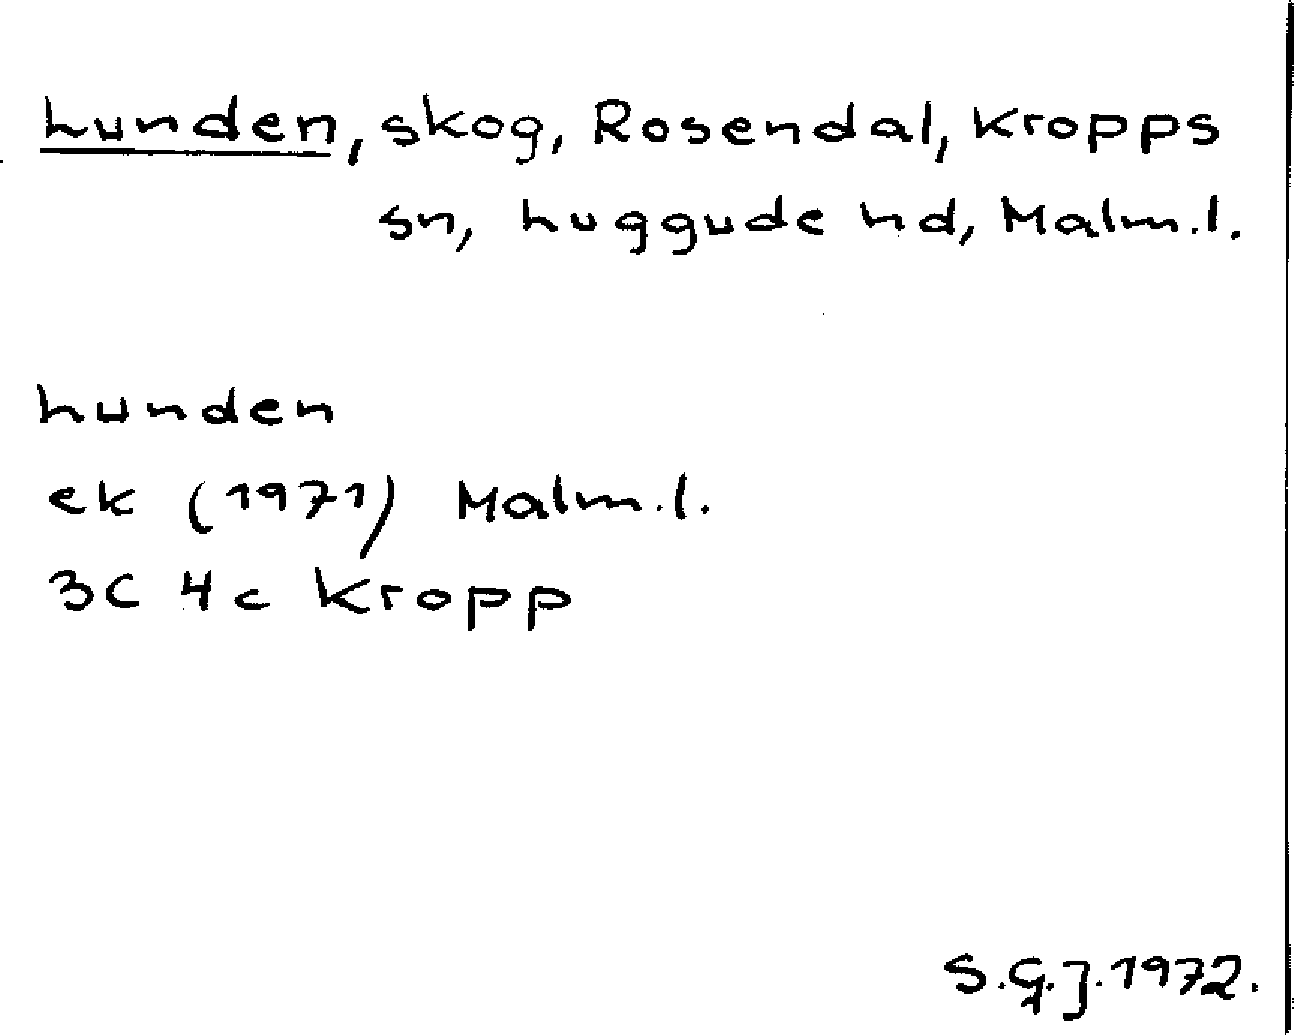 Lunden, skog, Rosendal, Kropps
sn, Luggude hd, Malm.l.
Lunden
ek (1971) Malm.l.
3C 4c Kropp
S.G.J. 1972.